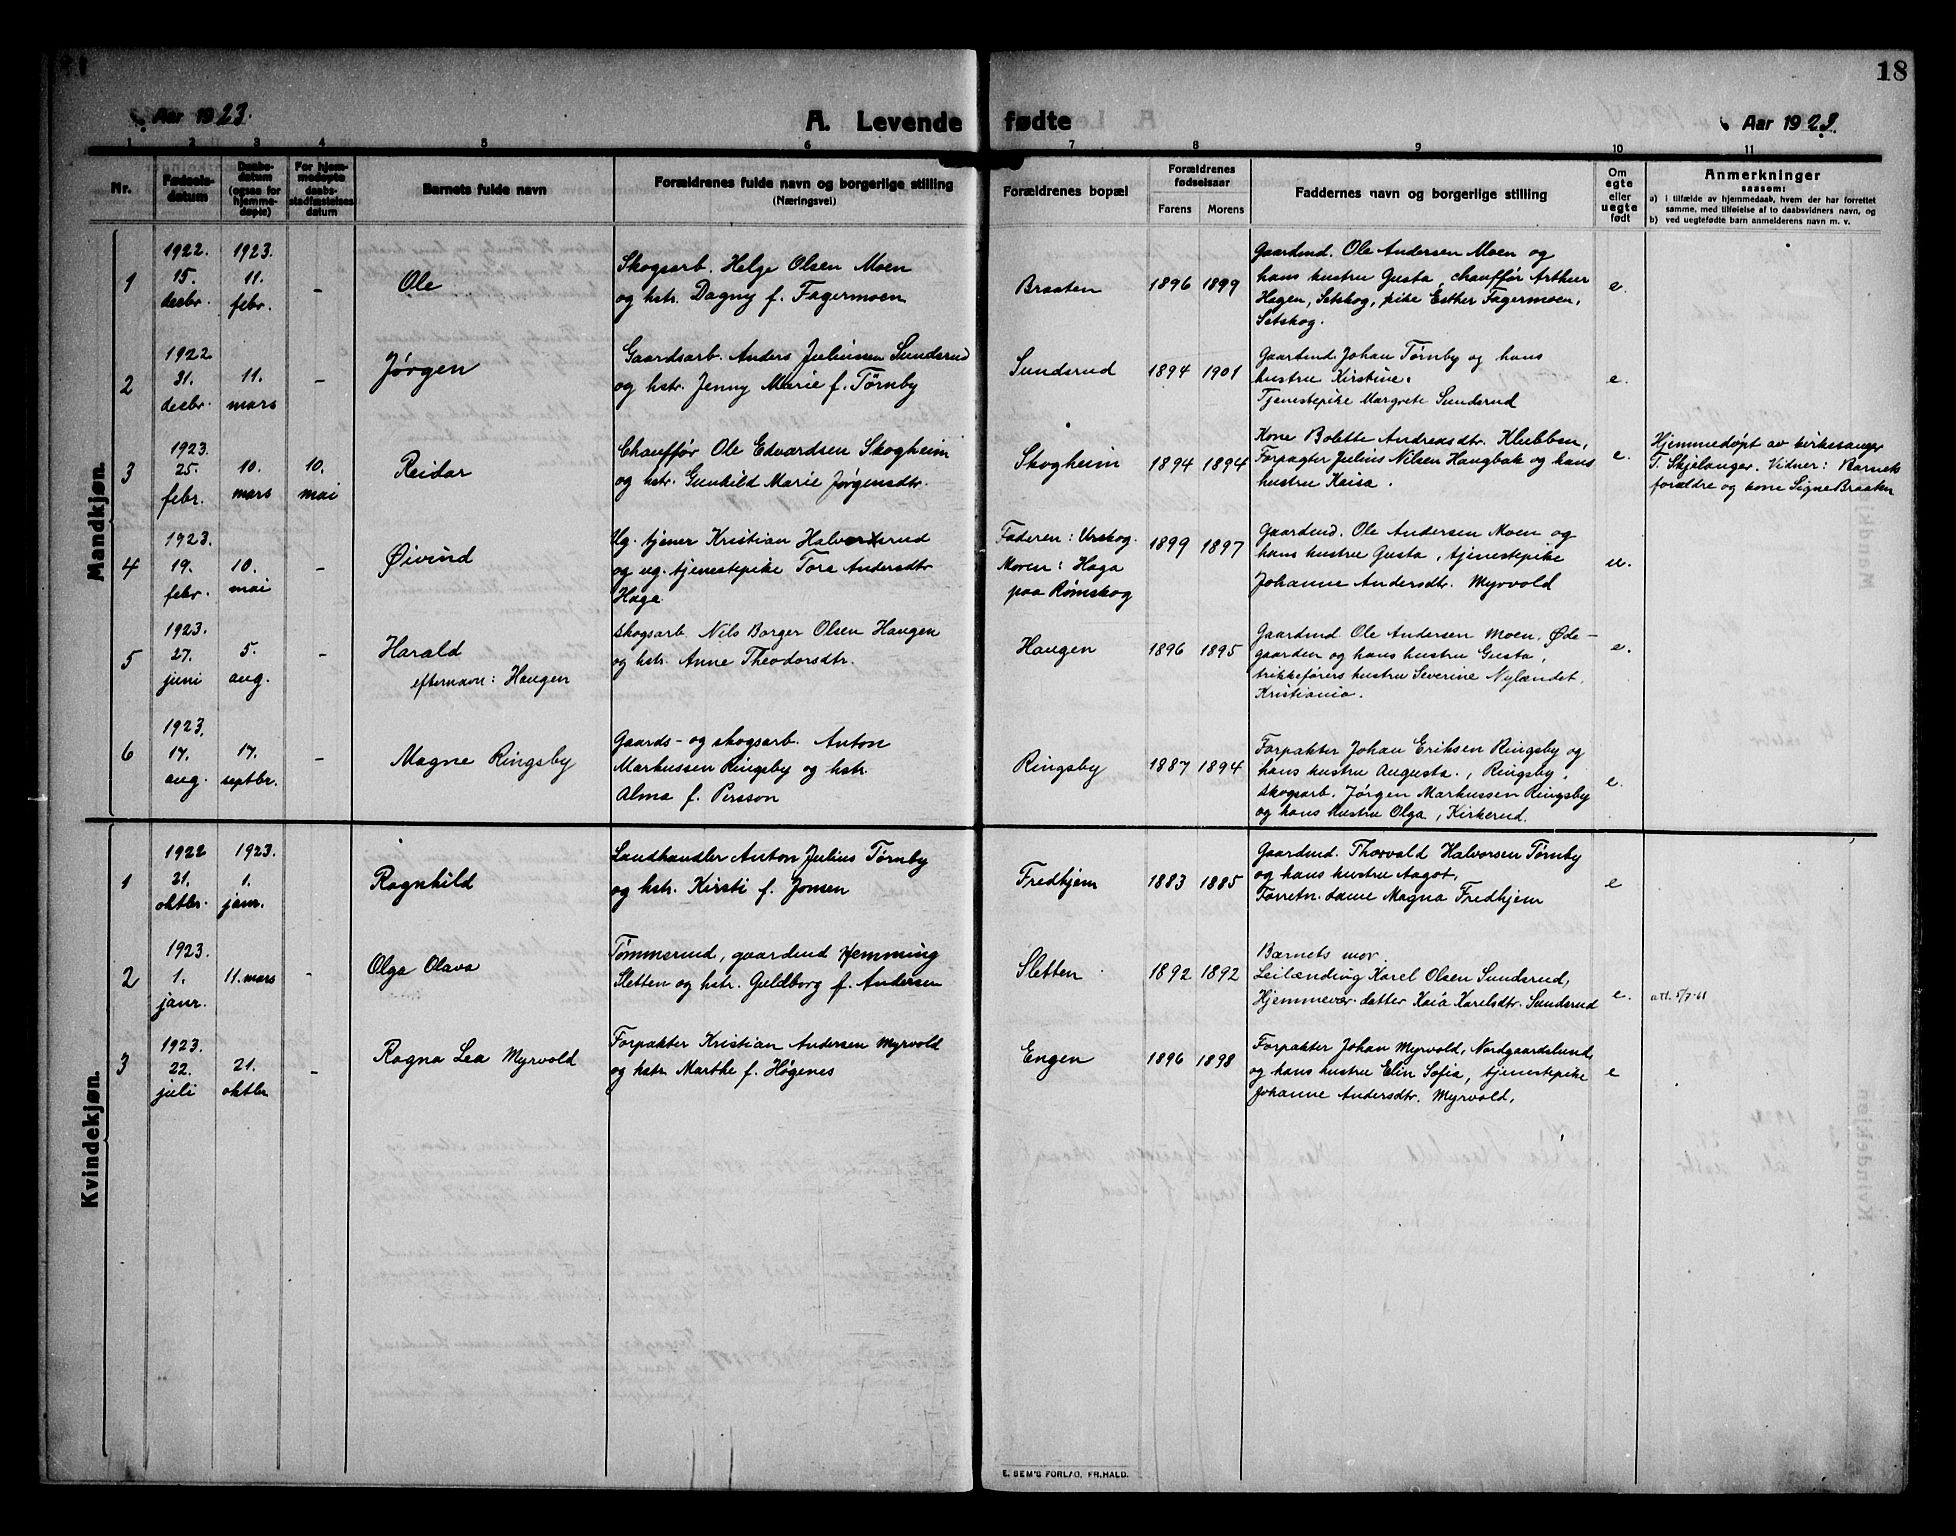 18
Aar 1923.
A. Levende fødte
Aar 1923.
1 2 3 4 5 6 7 8 9 10 11
Nr.
Fødsels-
datum
Daabs-
datum
(ogsaa for
hjemme-
døpte)
For hjem-
medøpte
daabs-
stadfæstelses
datum
Barnets fulde navn
Forældrenes fulde navn og borgerlige stilling
(Næringsvei)
Forældrenes bopæl
Forældrenes
fødselsaar
Farens Morens
Faddernes navn og borgerlige stilling
Om
egte
eller
uegte
født
Anmerkninger
saasom:
a) i tilfælde av hjemmedaab, hvem der har forrettet
samme, med tilføielse af to daabsvidners navn, og
b) ved uegtefødte barn anmelderens navn m. v.
Mandkjøn.
1
1922.
15.
decbr.
1923.
11.
febr.
-
Ole
Skogsarb. Helge Olsen Moen
og hstr. Dagny f. Fagermoen
Braaten
1896 1899
Gaardmd. Ole Andersen Moen og
hans hustru Gusta, chauffør Arthur
Hagen, Setskog, pike Esther Fagermoen,
Setskog.
e.
2
1922
31.
decbr.
11.
mars
-
Jørgen
Gaardsarb. Anders Juliussen Sundsrud
og hstr. Jenny Marie f. Tørnby
Sundsrud
1894 1901
Gaardmd. Johan Tørnby og hans
hustru Kirstine.
Tjenestepike Margrete Sundsrud
e.
3
1923.
25.
febr.
10.
mars
10.
mai
Reidar
Chauffør Ole Edvardsen Skogheim
og hstr. Gunhild Marie Jørgensdtr.
Skogheim
1894 1894
Kone Bolette Andreasdtr. Klubben,
Forpagter Julius Nilsen Haugbak og hans
hustru Kaisa.
e.
Hjemmedøpt av kirkesanger
T. Skjelanger. Vidner: Barnets
forældre og kone Signe Braaten
4
1923.
19.
febr.
10.
mai
-
Øivind
Ug. tjener Kristian Halvorsrud
og ug. tjenestepike Tora Andersdtr
Haga
Faderen: Urskog.
Moren: Haga
paa Rømskog
1899 1897
Gaardmd. Ole Andersen Moen og
hans hustru Gusta, tjenestepike
Johanne Andersdtr. Myrvold
u.
5
1923.
27.
juni
5.
aug.
-
Harald
efternavn: Haugen
Skogsarb. Nils Borger Olsen Haugen
og hstr. Anne Theodorsdtr.
Haugen
1896 1895
Gaardmd Ole Andersen Moen, Øde-
gaarden og hans hustru Gusta,
trikkeførers hustru Severine Nylændet,
Kristiania.
e.
6
1923.
17.
aug.
17.
septbr.
-
Magne Ringsby
Gaards- og skogsarb. Anton
Markussen Ringsby og hstr.
Alma f. Persson
Ringsby
1887 1894
Forpakter Johan Eriksen Ringsby og
hans hustru Augusta., Ringsby,
skogsarb. Jørgen Markussen Ringsby
og hans hustru Olga, Kirkerud.
e.
Kvindekjøn.
1
1922
21.
oktbr.
1923.
1.
janr.
Ragnhild
Landhandler Anton Julius Tørnby
og hstr. Kirsti f. Jonsen
Fredhjem
1883 1885
Gaardmd. Thorvald Halvorsen Tørnby
og hans hustru Aagot,
Forretn. dame Magna Fredhjem
e
2
1923.
1.
janr.
11. mars
-
Olga Olava
Tømmermd, gaardmd Hemming
Sletten og hstr. Guldborg f. Andersen
Sletten
1892 1892
Barnets mor.
Leilænding Karel Olsen Sundsrud,
Hjemmevær. datter Kaia Karelsdtr. Sundsrud
e.
att. 5/7-61
3
1923.
22.
juli
21.
oktbr
-
Ragna Lea Myrvold
Forpakter Kristian Andersen Myrvold
og hstr. Marthe f. Høgenes
Engen
1896 1898
Forpakter Johan Myrvold, Nordgaardslund,
og hans hustru Elin Sofia, tjenestepike
Johanne Andersdtr. Myrvold.
e
E. SEM'S FORLAG, FR.HALD.